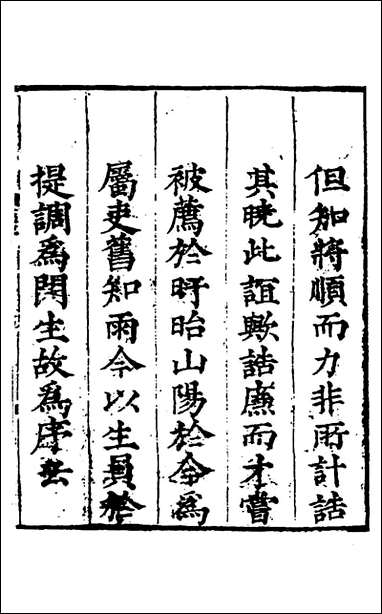 但知將順而力非所計詰
其曉此誼歟詰廉而才嘗
被薦於盱眙山陽於余爲
屬吏舊知雨今以生員於
提調爲門生故爲序云